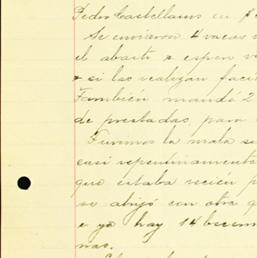 Pedro Castellanos en $
Se enviaron 4 vacas
el abasto a espen
+ si las realizan faci
También mandé 2
de prestadas, para
Tuvimos la mala su
casi repentinamente
que estaba recién p
se ahijó con otra q
e ya hay 14 becerr
nas.